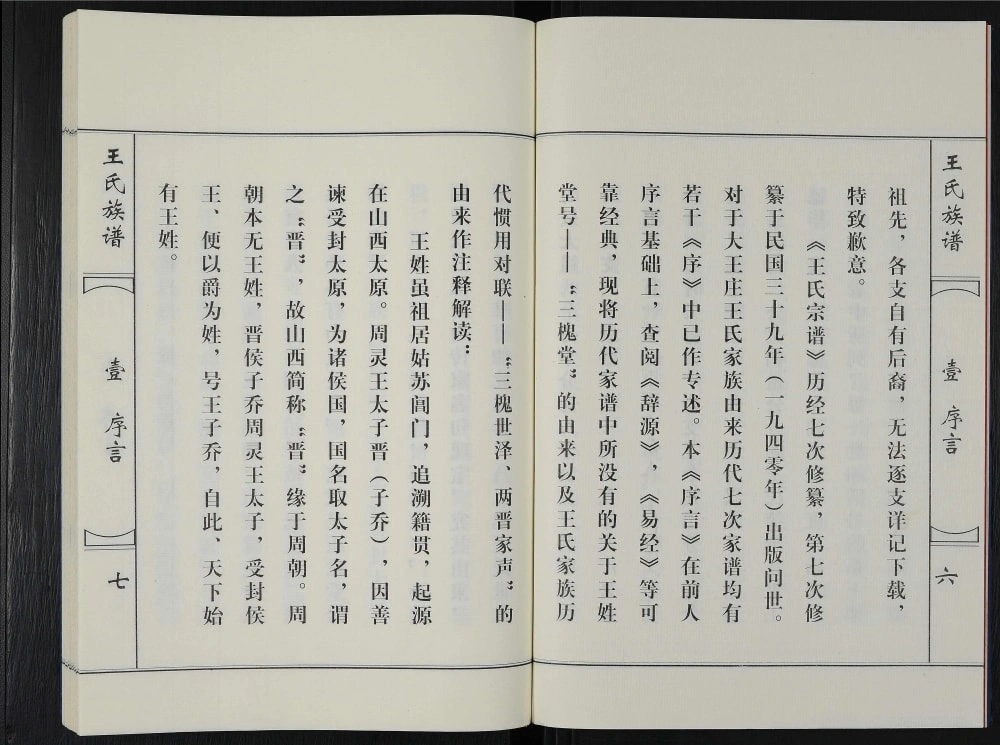 王氏族谱
壹 序言
六
祖先，各支自有后裔，无法逐支详记下载，
特致歉意。
《王氏宗谱》历经七次修纂，第七次修
纂于民国三十九年（一九四零年）出版问世。
对于大王庄王氏家族由来历代七次家谱均有
若干《序》中已作专述。本《序言》在前人
序言基础上，查阅《辞源》，《易经》等可
靠经典，现将历代家谱中所没有的关于王姓
堂号——“三槐堂”的由来以及王氏家族历
代惯用对联——“三槐世泽、两晋家声”的
由来作注释解读：
王姓虽祖居姑苏阊门，追溯籍贯，起源
在山西太原。周灵王太子晋（子乔），因善
谏受封太原，为诸侯国，国名取太子名，谓
之“晋”，故山西简称“晋”缘于周朝。周
朝本无王姓，晋侯子乔周灵王太子，受封侯
王、便以爵为姓，号王子乔，自此、天下始
有王姓。
王氏族谱
壹 序言
七